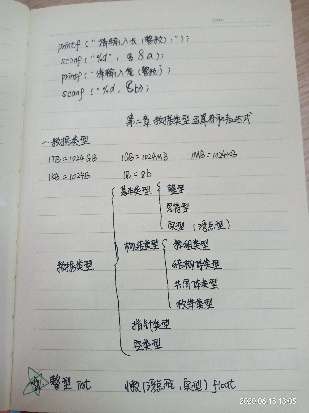 printf("请输入长(整数):");
scanf("%d", &a);
printf("请输入宽(整数)");
scanf("%d, &b);
第二章 数据类型 运算符和表达式
一.数据类型
1TB=1024GB 1GB=1024MB 1MB=1024KB
1KB=1024B 1B=8b
数据类型
基本类型
整型
字符型
实型(浮点型)
构造类型
数组类型
结构体类型
共同体类型
枚举类型
指针类型
空类型
整型 int (浮点型,实型) float
2020/06/13 13:05